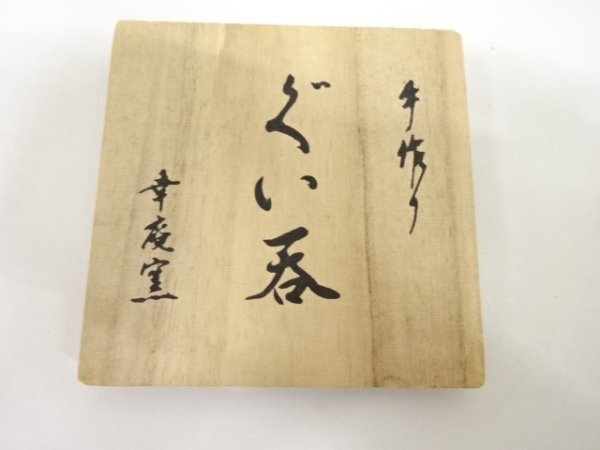 手作り
ぐい呑
幸庵窯